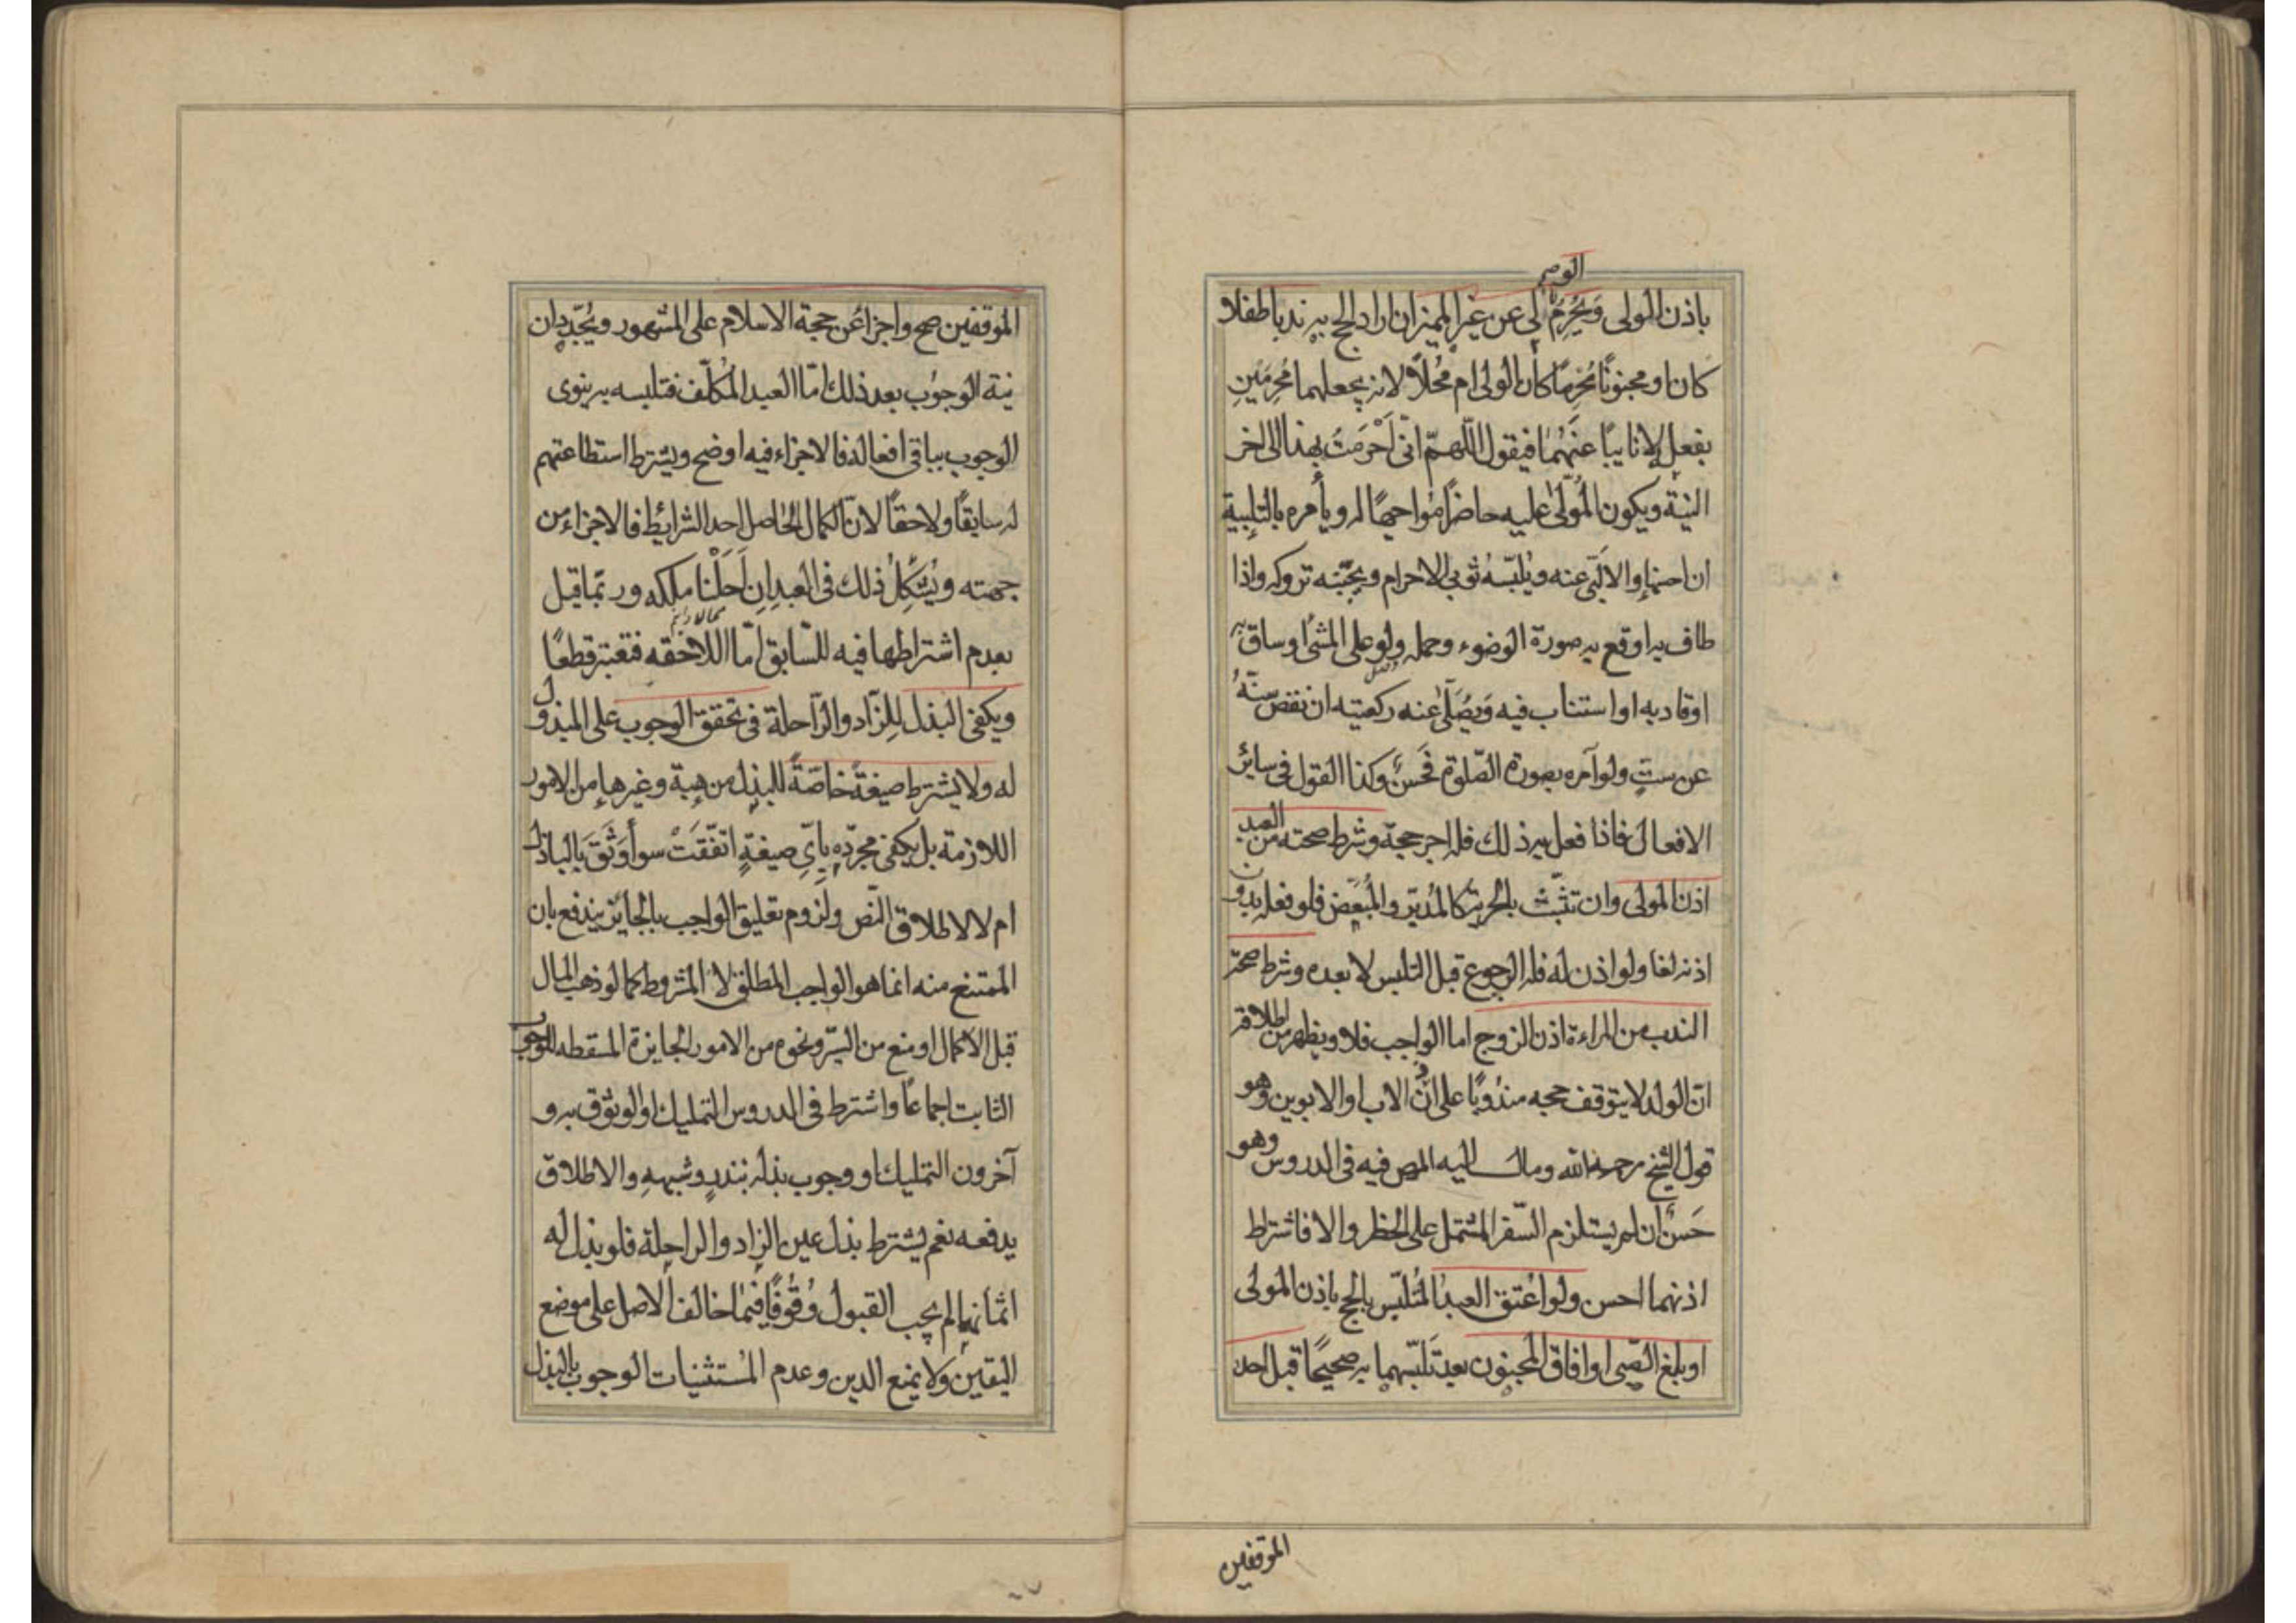 باذن الولى وَيُحْرِمُ الولى عن غير المميز ان اراد الحج به ندبا طفلا
كان او مجنونًا مُحْرِمًا كان الولى ام مُحِلّاً لانه يجعلهما مُحرِمَينِ
بفعلهِ لا نايبًا عَنْهُما فيقول اللّهمّ انّى اَحْرَمْتُ بهذا الى اخر
النيّة ويكون المُولّى عليه حاضرًا مُواجهًا له ويأمره بالتلبية
ان احسنها والا لبّى عنه ويُلبّسهُ ثوبى الاحرام ويجنّبه تروكه واذا
طاف به اوقع به صورة الوضوء وحمله ولو على المشىُ او ساق به
او قاد به او استناب فيه وَيُصَلّى عنه ركعتيه ان نقص سِنّهُ
عن ستٍ ولو آمره بصورة الصّلوة فَحَسَنٌ وكذا القول فى ساير
الافعال فاذا فعل به ذلك فله اجر حجة وشرط صحته من العبد
اذن المولى وان تشبّث بالحرية كالمُدبّر والمُبَعَّض فلو فعله بدون
اذنه لغا ولو اذن له فله الرجوع قبل التلبس لا بعده وشرط صحة
الندب من المراءة اذن الزوج اما الواجب فلا ويظهر من اطلاقه
انّ الولد لا يتوقف حجه مندُوبًا على اذن الاب او الابوين وهو
قول الشيخ رحمه الله ومال اليه المص فيه فى الدروس وهو
حَسَنٌ ان لم يستلزم السّفر المشتمل على الخطر والا فاشتراط
اذنهما احسن ولو اعتق العبدُ المُتلبّس بالحج باذن المولى
او بلغ الصّبى او افاق المجنون بعد تَلَبّسِهما به صحيحًا قبل احد
الموقفين
الموقفين صح واجزاَ عن حجة الاسلام على المشهور ويُجَدِّدان
نية الوجوُب بعد ذلك امّا العبد المُكلّف فتلبسه به ينوى
الوجوب بباقى افعاله فالاجزاء فيه اوضح ويشترط استطاعتهم
له سابقًا ولاحقاً لانّ الكمال الحاصل احد الشرايُط فالاجزاء من
جهته ويُشكِلُ ذلك فى العبد اِن اَحَلْنا ملكه وربّما قيل
بعدم اشتراطها فيه للسّابق امّا اللاحقه فتعتبر قطعًا
ويكفى البذل لِلزّاد والرّاحلة فى تحقق الوجوب على المبذول
له ولا يشترط صيغةً خاصّةً للبذل من هِبة وغيرها من الامور
اللازمة بل يكفى مجرّده بِاَىِّ صيغةٍ اتّفَقَتْ سوأ وَثَقَ بالباذل
ام لا لاطلاق النّص ولزوم تعليق الواجب بالجايز يندفع بان
الممتنع منه انما هو الواجب المطلق لا المشروط كما لو ذهب المال
قبل الاكمال او منع من السّير ونحوه من الامور الجايزة المسقطه للوجوب
الثابت اجماعًا واشترط فى الدروس التمليك او الوثوق به و
آخرون التمليك او وجوب بذله بنذرٍ وشبههِ والاطلاق
يدفعه نعم يشترط بذل عين الزاد والراحِلة فلو بذل له
اثمانهما لم يجب القبول وُقُوفًا فيما خالف الاصل على موضع
اليقين ولا يمنع الدين وعدم المُستثنيات الوجوب بالبذل